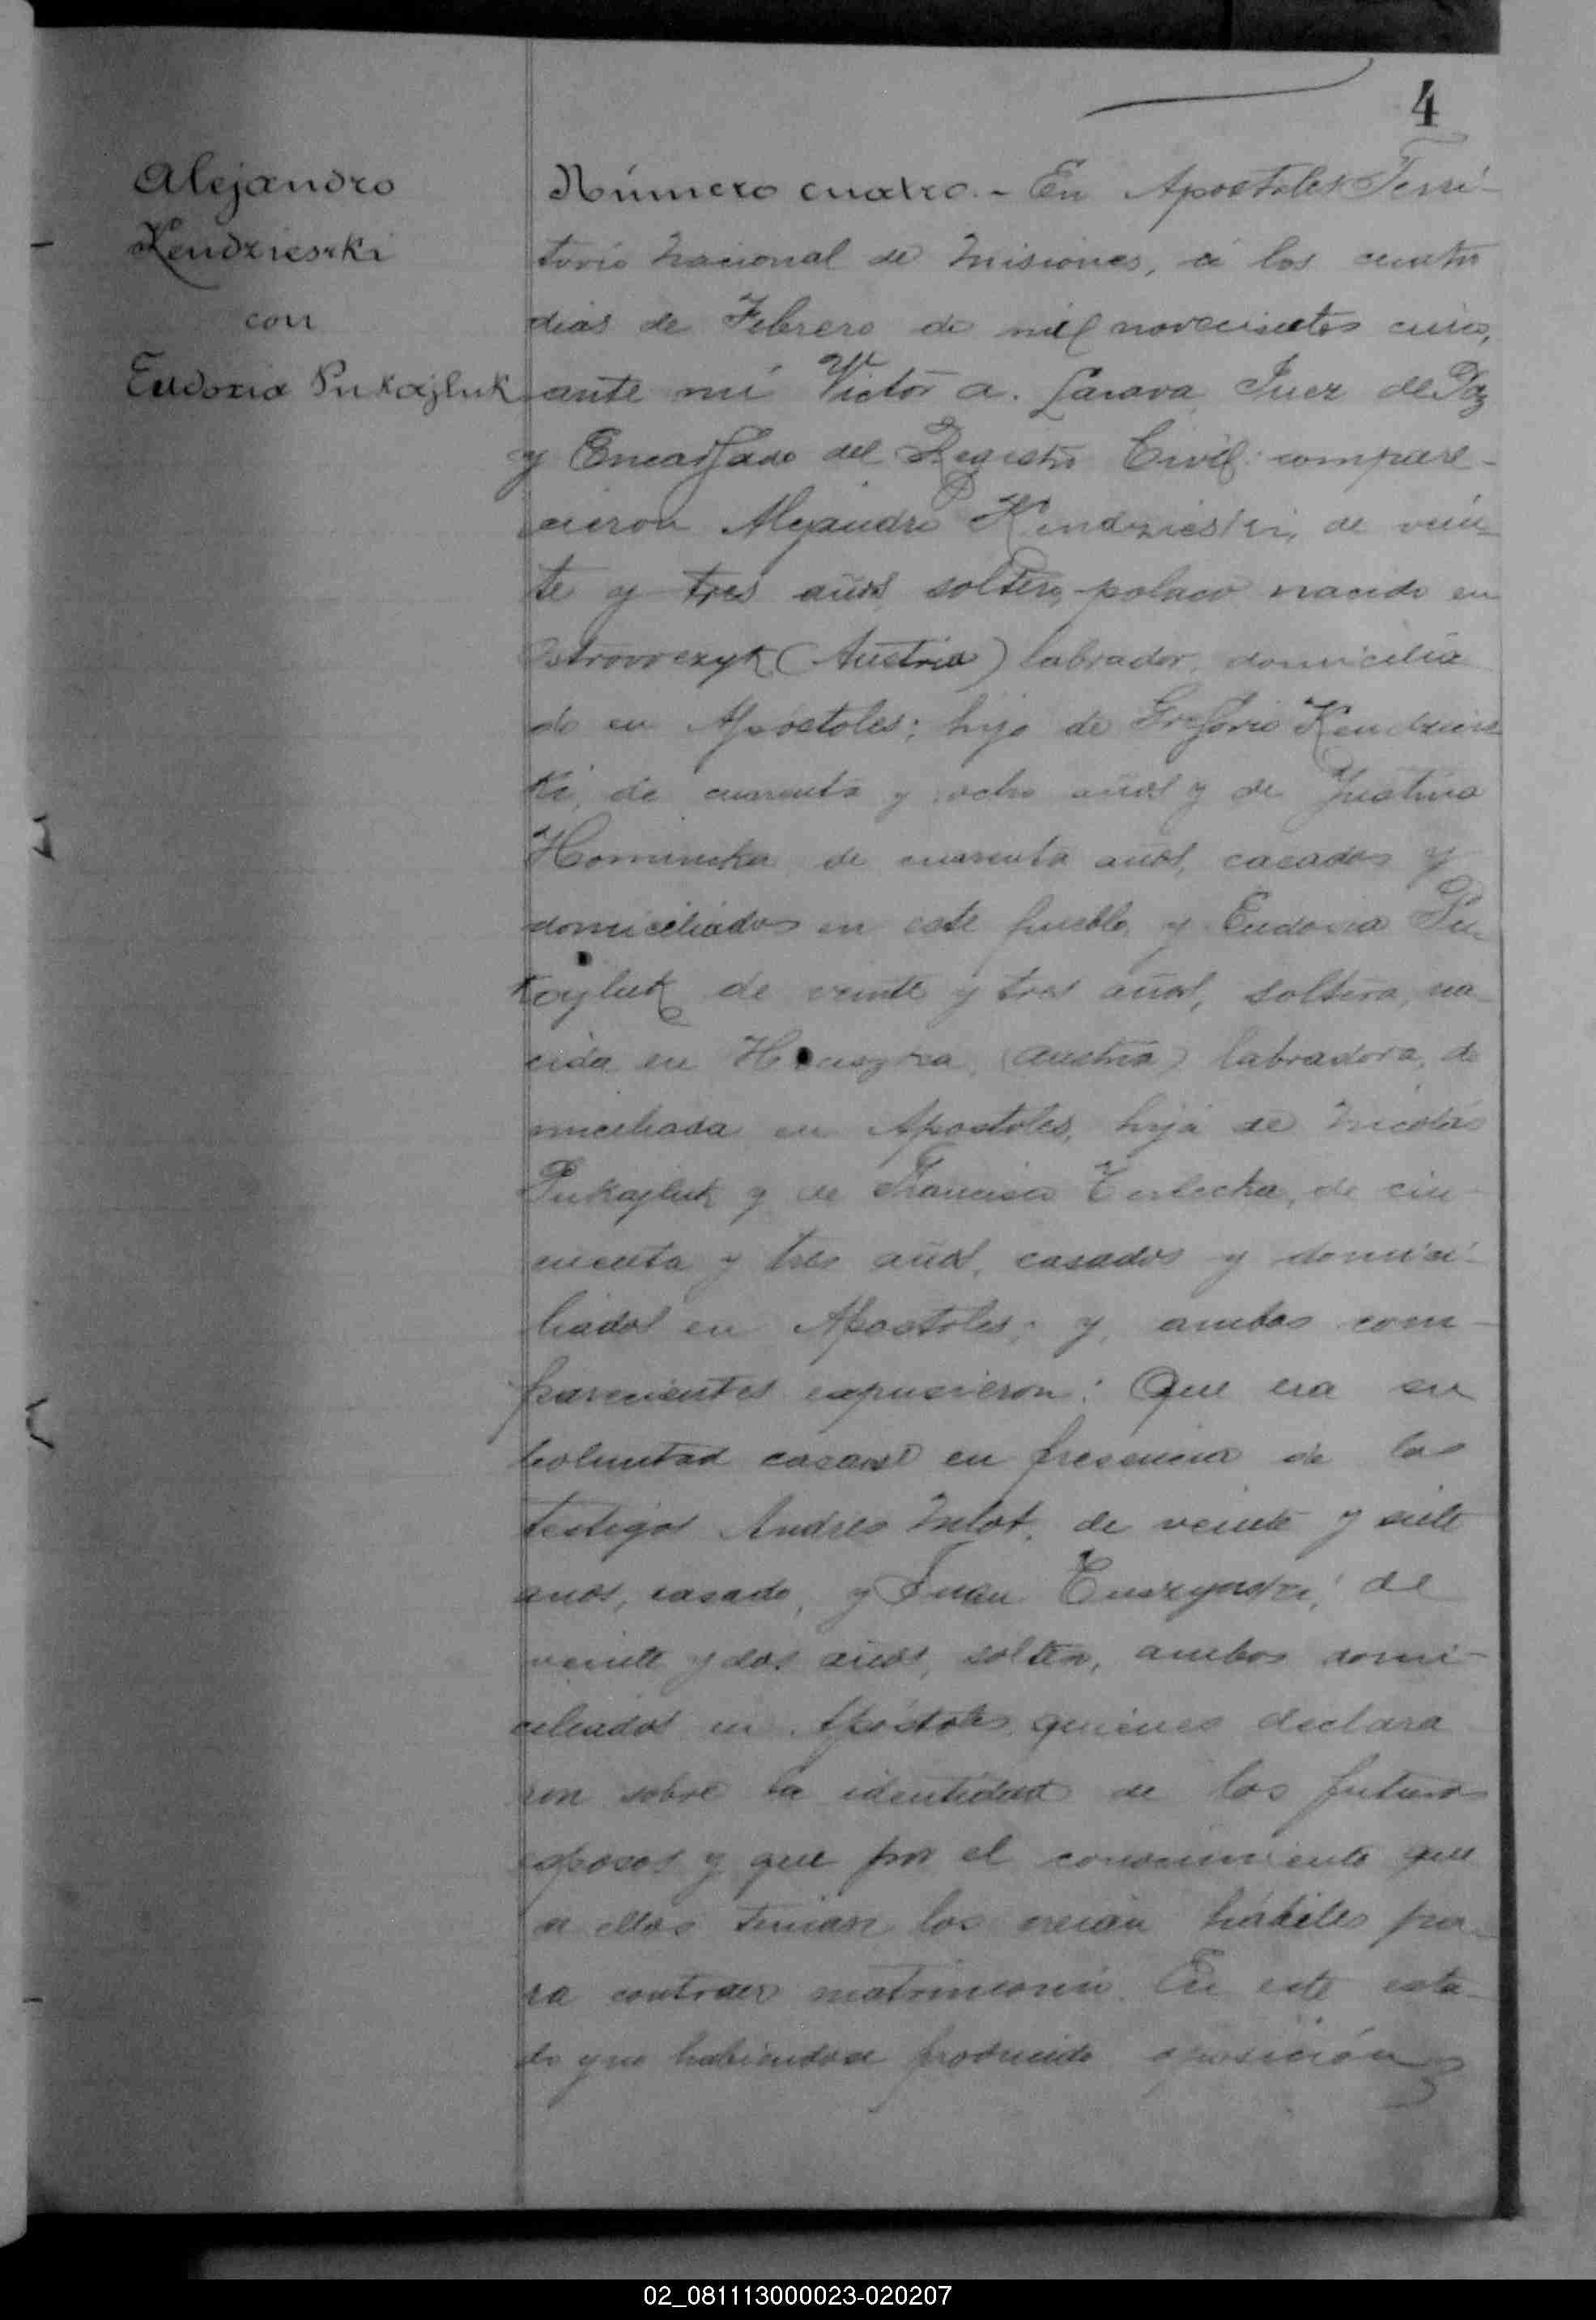 4
Alejandro
Kendzieski
con
Eudoxia Pukajluk
Número cuatro.- En Apostoles Terri-
torio Nacional de Misiones, á los cuatro
dias de Febrero de mil novecientos cinco,
ante mí Victor A. Larava Juez de Paz
y Encargado del Registro Civil: compare-
cieron Alejandro Kendzieski, de vein-
te y tres años, soltero, polaco nacido en
Ostrovczyk (Austria) labrador, domicilia
do en Apóstoles; hijo de Gregorio Kendzies
ki, de cuarenta y ocho años y de Justina
Hominska de cuarenta años, casados y
domiciliados en este pueblo, y Eudoxia Pu-
kajluk de veinte y tres años, soltera, na-
cida en (Austria) labradora, do
miciliada en Apostoles, hija de Nicolás
Pukajluk y de Francisca Terlecka, de cin-
cuenta y tres años, casados y domici-
liados en Apostoles; y, ambos com-
parecientes expusieron: Que era su
voluntad casarse en presencia de los
testigos Andrés Mlot, de veinte y siete
años, casado, y Juan de
veinte y dos años, soltero, ambos domi-
ciliados en Apóstoles, quienes declara
ron sobre la identidad de los futuros
esposos y que por el conocimiento que
de ellos tenian los creían hábiles pa-
ra contraer matrimonio. En este esta-
do y no habiendose producido oposición
02_081113000023-020207